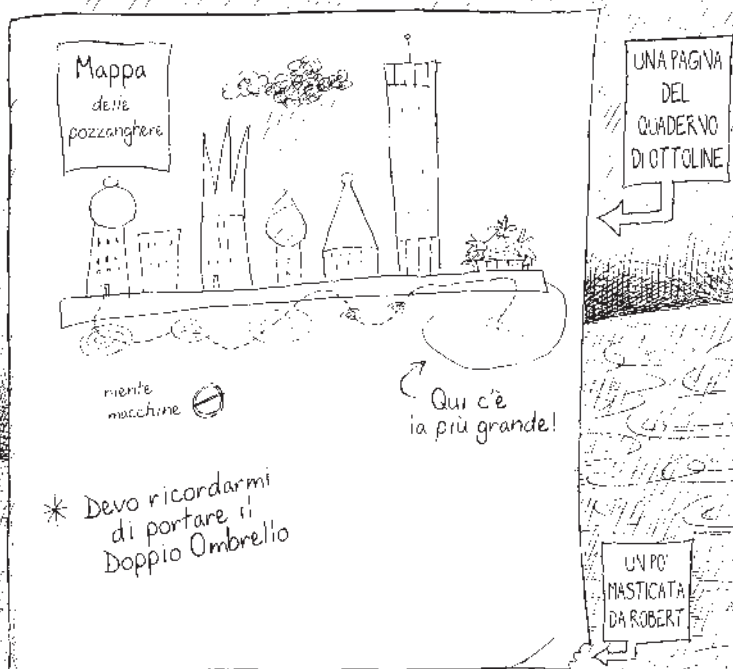 Mappa
delle
pozzanghere
UNA PAGINA
DEL
QUADERNO
DI OTTOLINE
niente
macchine
Qui c'è
la più grande!
* Devo ricordarmi
di portare il
Doppio Ombrello
UN PO'
MASTICATA
DA ROBERT